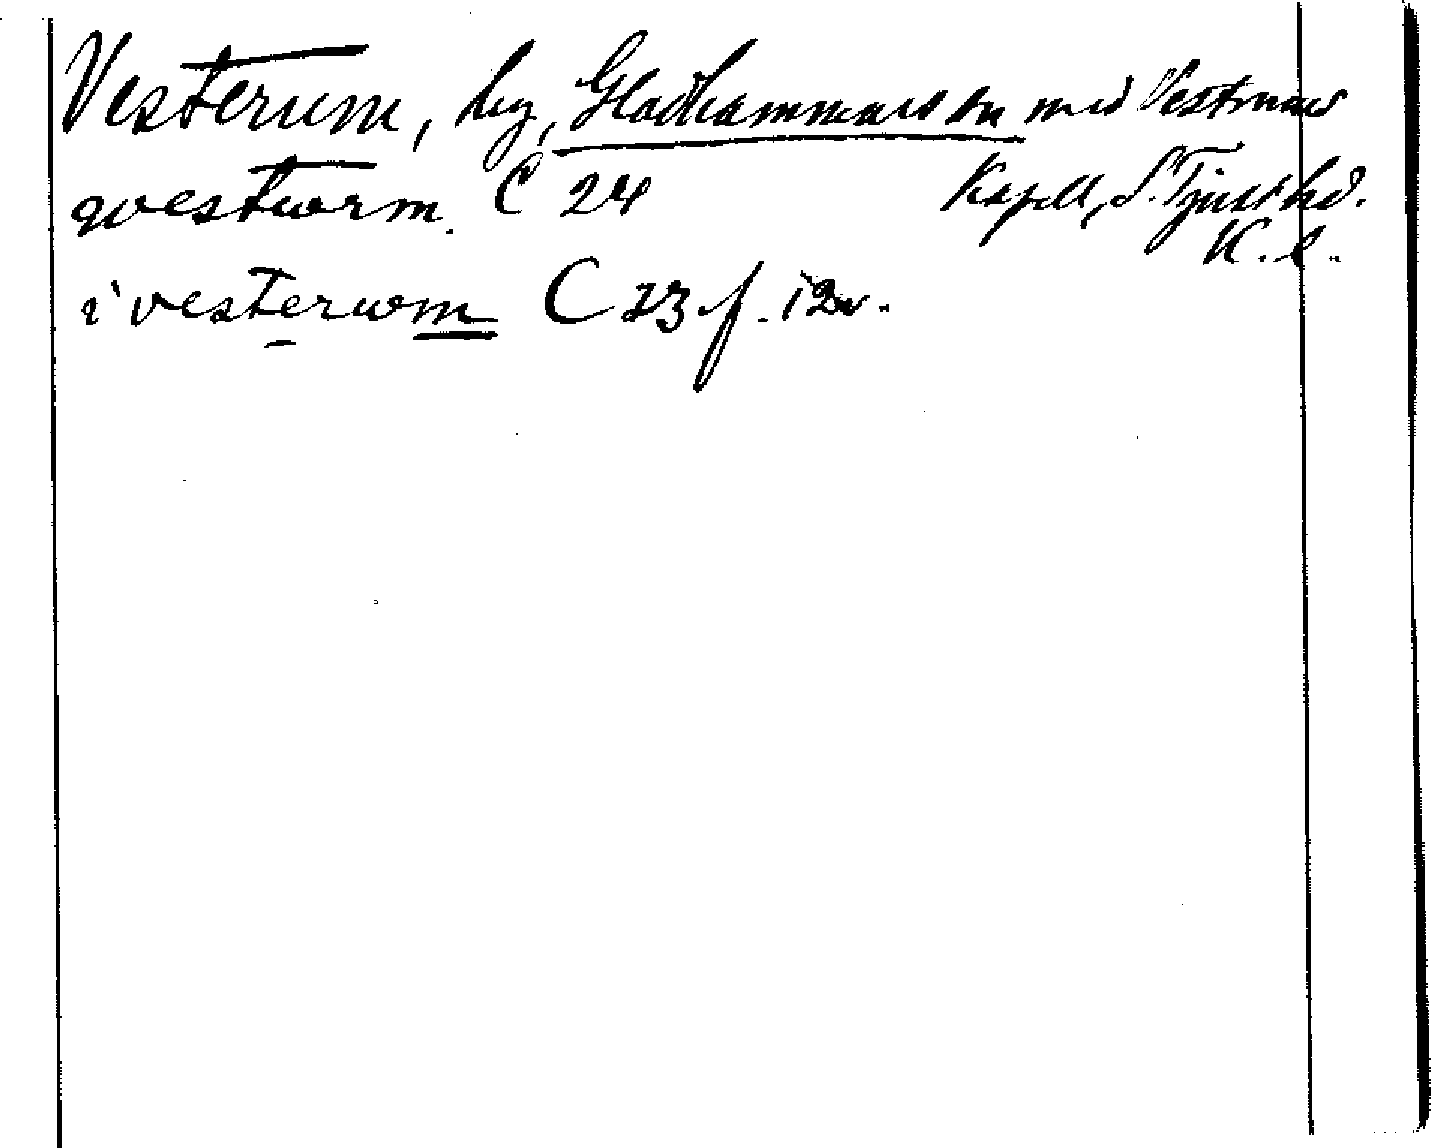 Vesterum, by, Gladhammars sn med Vestrums
qvestwrm. C 24 Kapell, S. Tjust hd.
K. l.
i vesterwm C 23 f. 12v.